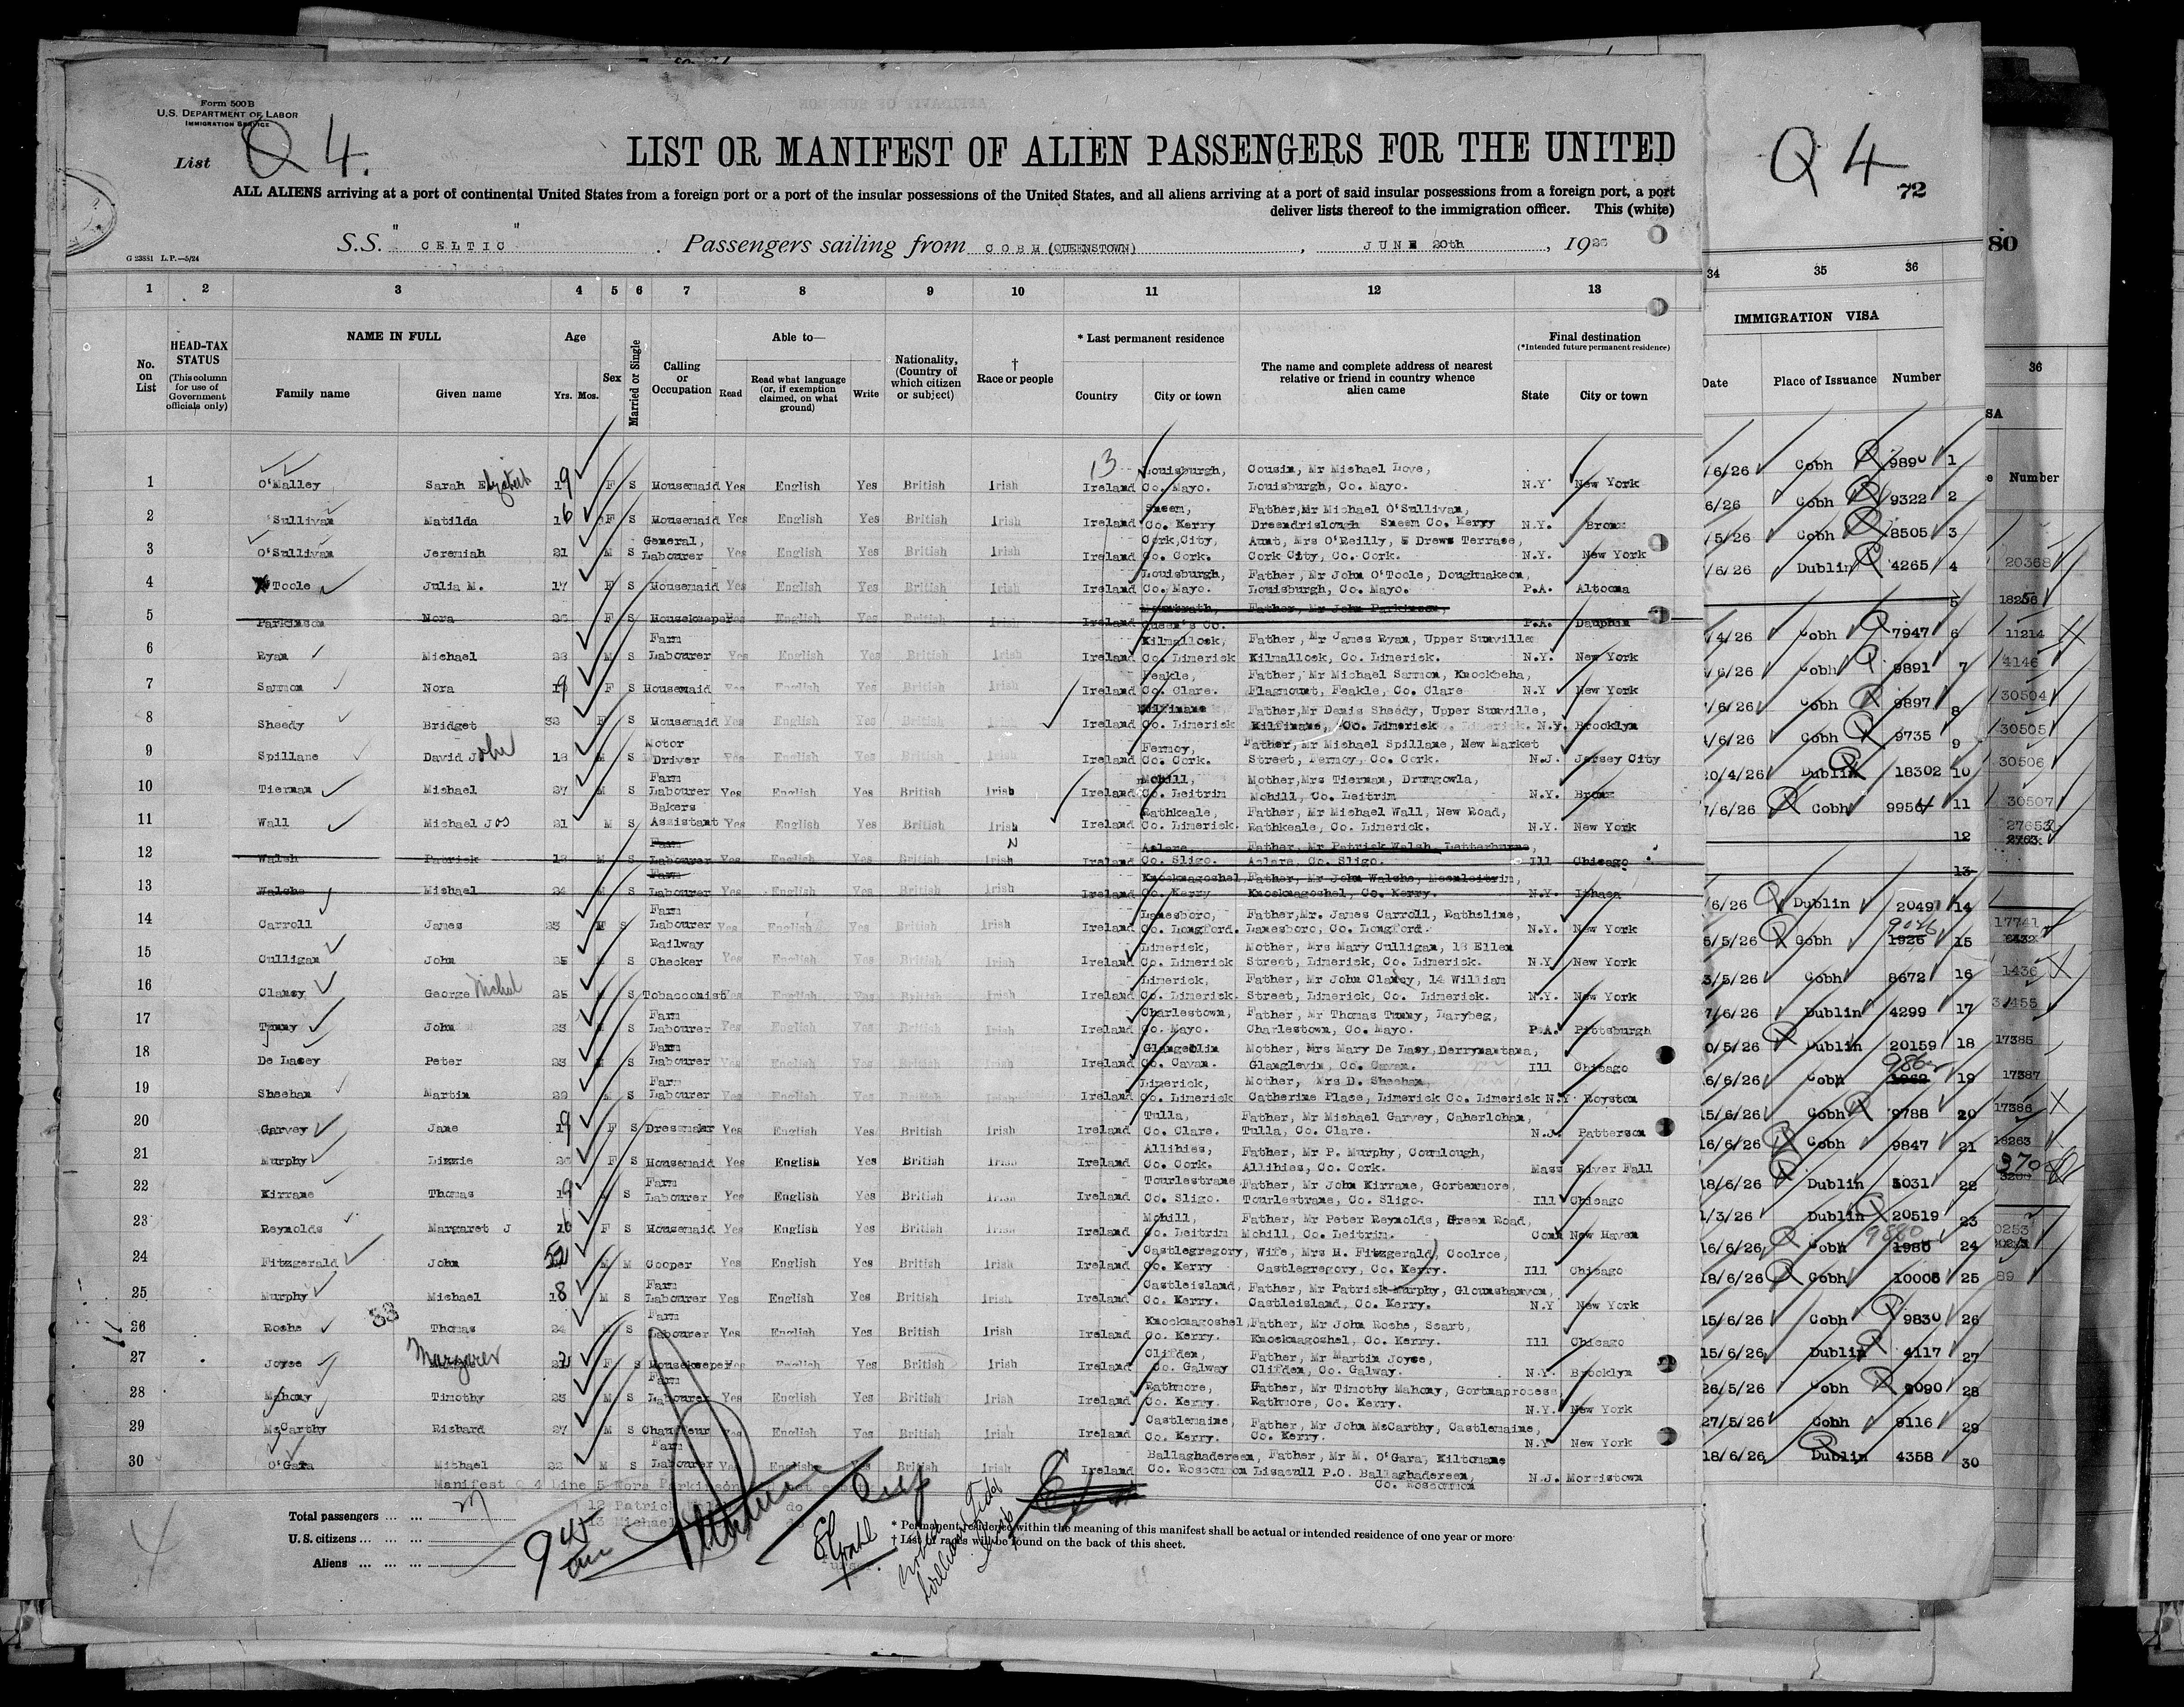 Form 500B
U.S. DEPARTMENT OF LABOR
IMMIGRATION SERVICE
List Q 4.
LIST OR MANIFEST OF ALIEN PASSENGERS FOR THE UNITED
ALL ALIENS arriving at a port of continental United States from a foreign port or a port of the insular possessions of the United States, and all aliens arriving at a port of said insular possessions from a foreign port, a port
deliver lists thereof to the immigration officer. This (white)
S.S. "CELTIC" Passengers sailing from COBH (QUEENSTOWN), JUNE 20th, 1926
G 23881 L.P.—5/24
Q 4 72
80
1 2 3 4 5 6 7 8 9 10 11 12 13 34 35 36
No. on List
HEAD-TAX STATUS (This column for use of Government officials only)
NAME IN FULL Family name Given name
Age Yrs. Mos.
Sex
Married or Single
Calling or Occupation
Able to— Read Read what language (or, if exemption claimed, on what ground) Write
Nationality, (Country of which citizen or subject)
† Race or people
* Last permanent residence Country City or town
The name and complete address of nearest relative or friend in country whence alien came
Final destination (*Intended future permanent residence) State City or town
IMMIGRATION VISA Date Place of Issuance Number
36 Number
1 O'Malley Sarah Elizabeth 19 F S Housemaid Yes English Yes British Irish Ireland Louisburgh, Co. Mayo. Cousin, Mr Michael Love, Louisburgh, Co. Mayo. N.Y. New York /6/26 Cobh 9890 1
2 'Sullivan Matilda 16 F S Housemaid Yes English Yes British Irish Ireland Sneem, Co. Kerry Father, Mr Michael O'Sullivan, Dreendrislough Sneem Co. Kerry N.Y. Bronx 6/26 Cobh 9322 2
3 O'Sullivan Jeremiah 21 M S General, Labourer Yes English Yes British Irish Ireland Cork, City, Co. Cork. Aunt, Mrs O'Reilly, Drews Terrase, Cork City, Co. Cork. N.Y. New York /5/26 Cobh 8505 3
4 Toole Julia M. 17 F S Housemaid Yes English Yes British Irish Ireland Louisburgh, Co. Mayo. Father, Mr John O'Toole, Doughmakeon, Louisburgh, Co. Mayo. P.A. Altoona /6/26 Dublin 4265 4
5 Parkinson Nora 26 F S Housekeeper Yes English Yes British Irish Ireland Mountrath, Queen's Co. Father, Mr John Parkinson, P.A. Dauphin 5
6 Ryan Michael 28 M S Farm Labourer Yes English Yes British Irish Ireland Kilmallock, Co. Limerick Father, Mr James Ryan, Upper Sunville Kilmallock, Co. Limerick. N.Y. New York /4/26 Cobh 7947 6
7 Sammon Nora 19 F S Housemaid Yes English Yes British Irish Ireland Feakle, Co. Clare. Father, Mr Michael Sammon, Knockbeha, Flagmount, Feakle, Co. Clare N.Y New York /6/26 Cobh 9891 7
8 Sheedy Bridget 32 F S Housemaid Yes English Yes British Ireland Kilfinane Co. Limerick Father, Mr Denis Sheedy, Upper Sunville, Kilfinane, Co. Limerick N.Y. Brooklyn /6/26 Cobh 9897 8
9 Spillane David John 18 M S Motor Driver Yes English Yes British Irish Ireland Fermoy, Co. Cork. Father, Mr Michael Spillane, New Market Street, Fermoy, Co. Cork. N.J. Jersey City /6/26 Cobh 9735 9
10 Tiernan Michael 27 M S Farm Labourer Yes English Yes British Irish Ireland Mohill, Co. Leitrim Mother, Mrs Tiernan, Drumgowla, Mohill, Co. Leitrim N.Y. Bronx 0/4/26 Dublin 18302 10
11 Wall Michael Jos 21 M S Bakers Assistant Yes English Yes British Irish Ireland Rathkeale, Co. Limerick. Father, Mr Michael Wall, New Road, Rathkeale, Co. Limerick. N.Y. New York 7/6/26 Cobh 9954 11
12 Walsh Patrick 18 M S Farm Labourer Yes English Yes British Irish Ireland Aclare, Co. Sligo. Father, Mr Patrick Walsh, Letterburne, Aclare, Co. Sligo. Ill Chicago 12
13 Walshe Michael 24 M S Farm Labourer Yes English Yes British Irish Ireland Knocknagoshel, Co. Kerry Father, Mr John Walshe, Meenleitrim, Knocknagoshel, Co. Kerry. N.Y. Ithaca 13
14 Carroll James 23 M S Farm Labourer Yes English Yes British Irish Ireland Lanesboro, Co. Longford. Father, Mr. James Carroll, Ratheline, Lanesboro, Co. Longford. N.Y. New York /6/26 Dublin 20497 14
15 Culligan John 25 M S Railway Checker Yes English Yes British Irish Ireland Limerick, Co. Limerick Mother, Mrs Mary Culligan, 18 Ellen Street, Limerick, Co. Limerick. N.Y New York 6/5/26 Cobh 1926 9026 15
16 Clancy George Michael 25 M S Tobacconist Yes English Yes British Irish Ireland Limerick, Co. Limerick. Father, Mr John Clancy, 14 William Street, Limerick, Co. Limerick. N.Y. New York 3/5/26 Cobh 8672 16
17 Tunny John 23 M S Farm Labourer Yes English Yes British Irish Ireland Charlestown, Co. Mayo. Father, Mr Thomas Tunny, Larybeg, Charlestown, Co. Mayo. P.A. Pittsburgh 7/6/26 Dublin 4299 17
18 De Lacey Peter 23 M S Farm Labourer Yes English Yes British Irish Ireland Glangevlin Co. Cavan. Mother, Mrs Mary De Lasy, Derrynantana, Glanglevin, Co. Cavan. Ill Chicago 0/5/26 Dublin 20159 18
19 Sheehan Martin 29 M S Farm Labourer Yes English Yes British Irish Ireland Limerick, Co. Limerick Mother, Mrs D. Sheehan Catherine Place, Limerick Co. Limerick N.Y Royston 6/6/26 Cobh 1962 19
20 Garvey Jane 19 F S Dressmaker Yes English Yes British Irish Ireland Tulla, Co. Clare. Father, Mr Michael Garvey, Caherlohan, Tulla, Co. Clare. N.J. Patterson 15/6/26 Cobh 9788 20
21 Murphy Lizzie 26 F S Housemaid Yes English Yes British Irish Ireland Allihies, Co. Cork. Father, Mr P. Murphy, Coumlough, Allihies, Co. Cork. Mass River Fall 16/6/26 Cobh 9847 21
22 Kirrane Thomas 19 M S Farm Labourer Yes English Yes British Irish Ireland Tourlestrane Co. Sligo. Father, Mr John Kirrane, Gortenmore, Tourlestrane, Co. Sligo. Ill Chicago 18/6/26 Dublin 5031 22
23 Reynolds Margaret J F S Housemaid Yes English Yes British Irish Ireland Mohill, Co. Leitrim Father, Mr Peter Reynolds, Green Road, Mohill, Co. Leitrim. Conn New Haven 1/3/26 Dublin 20519 23
24 Fitzgerald John M M Cooper Yes English Yes British Irish Ireland Castlegregory, Co. Kerry Wife, Mrs H. Fitzgerald, Coolroe, Castlegregory, Co. Kerry. Ill Chicago 16/6/26 Cobh 1980 9880 24
25 Murphy Michael 18 M S Farm Labourer Yes English Yes British Irish Ireland Castleisland, Co. Kerry. Father, Mr Patrick Murphy, Glounshanvon, Castleisland, Co. Kerry. N.Y New York 18/6/26 Cobh 10005 25
26 Roche Thomas 24 M S Farm Labourer Yes English Yes British Irish Ireland Knocknagoshel, Co. Kerry. Father, Mr John Roche, Scart, Knocknagoshel, Co. Kerry. Ill Chicago 15/6/26 Cobh 9830 26
27 Joyce Margaret F S Housekeeper Yes English Yes British Irish Ireland Clifden, Co. Galway Father, Mr Martin Joyse, Clifden, Co. Galway. N.Y. Brooklyn 15/6/26 Dublin 4117 27
28 Mahony Timothy 25 M S Farm Labourer Yes English Yes British Irish Ireland Rathmore, Co. Kerry. Father, Mr Timothy Mahony, Gortnaprocess, Rathmore, Co. Kerry. N.Y. New York 26/5/26 Cobh 9090 28
29 McCarthy Richard 27 M S Chauffeur Yes English Yes British Irish Ireland Castlemaine, Co. Kerry. Father, Mr John McCarthy, Castlemaine, Co. Kerry. N.Y New York 27/5/26 Cobh 9116 29
30 O'Gara Michael 22 M S Farm Labourer Yes English Yes British Irish Ireland Ballaghadereen, Co. Roscommon Father, Mr M. O'Gara, Kiltomane Lisacull P.O. Ballaghadereen, Co. Roscommon N.J. Morristown 18/6/26 Dublin 4358 30
Manifest Q 4 Line 5 Nora Parkinson
12 Patrick do
13 Michael do
Total passengers
U.S. citizens
Aliens
* Permanent residence within the meaning of this manifest shall be actual or intended residence of one year or more
† List of races will be found on the back of this sheet.
20368
18256
11214
4146
30504
30505
30506
30507
27653
2763
17741
1436
17385
17387
17386
18263
370
0253
89